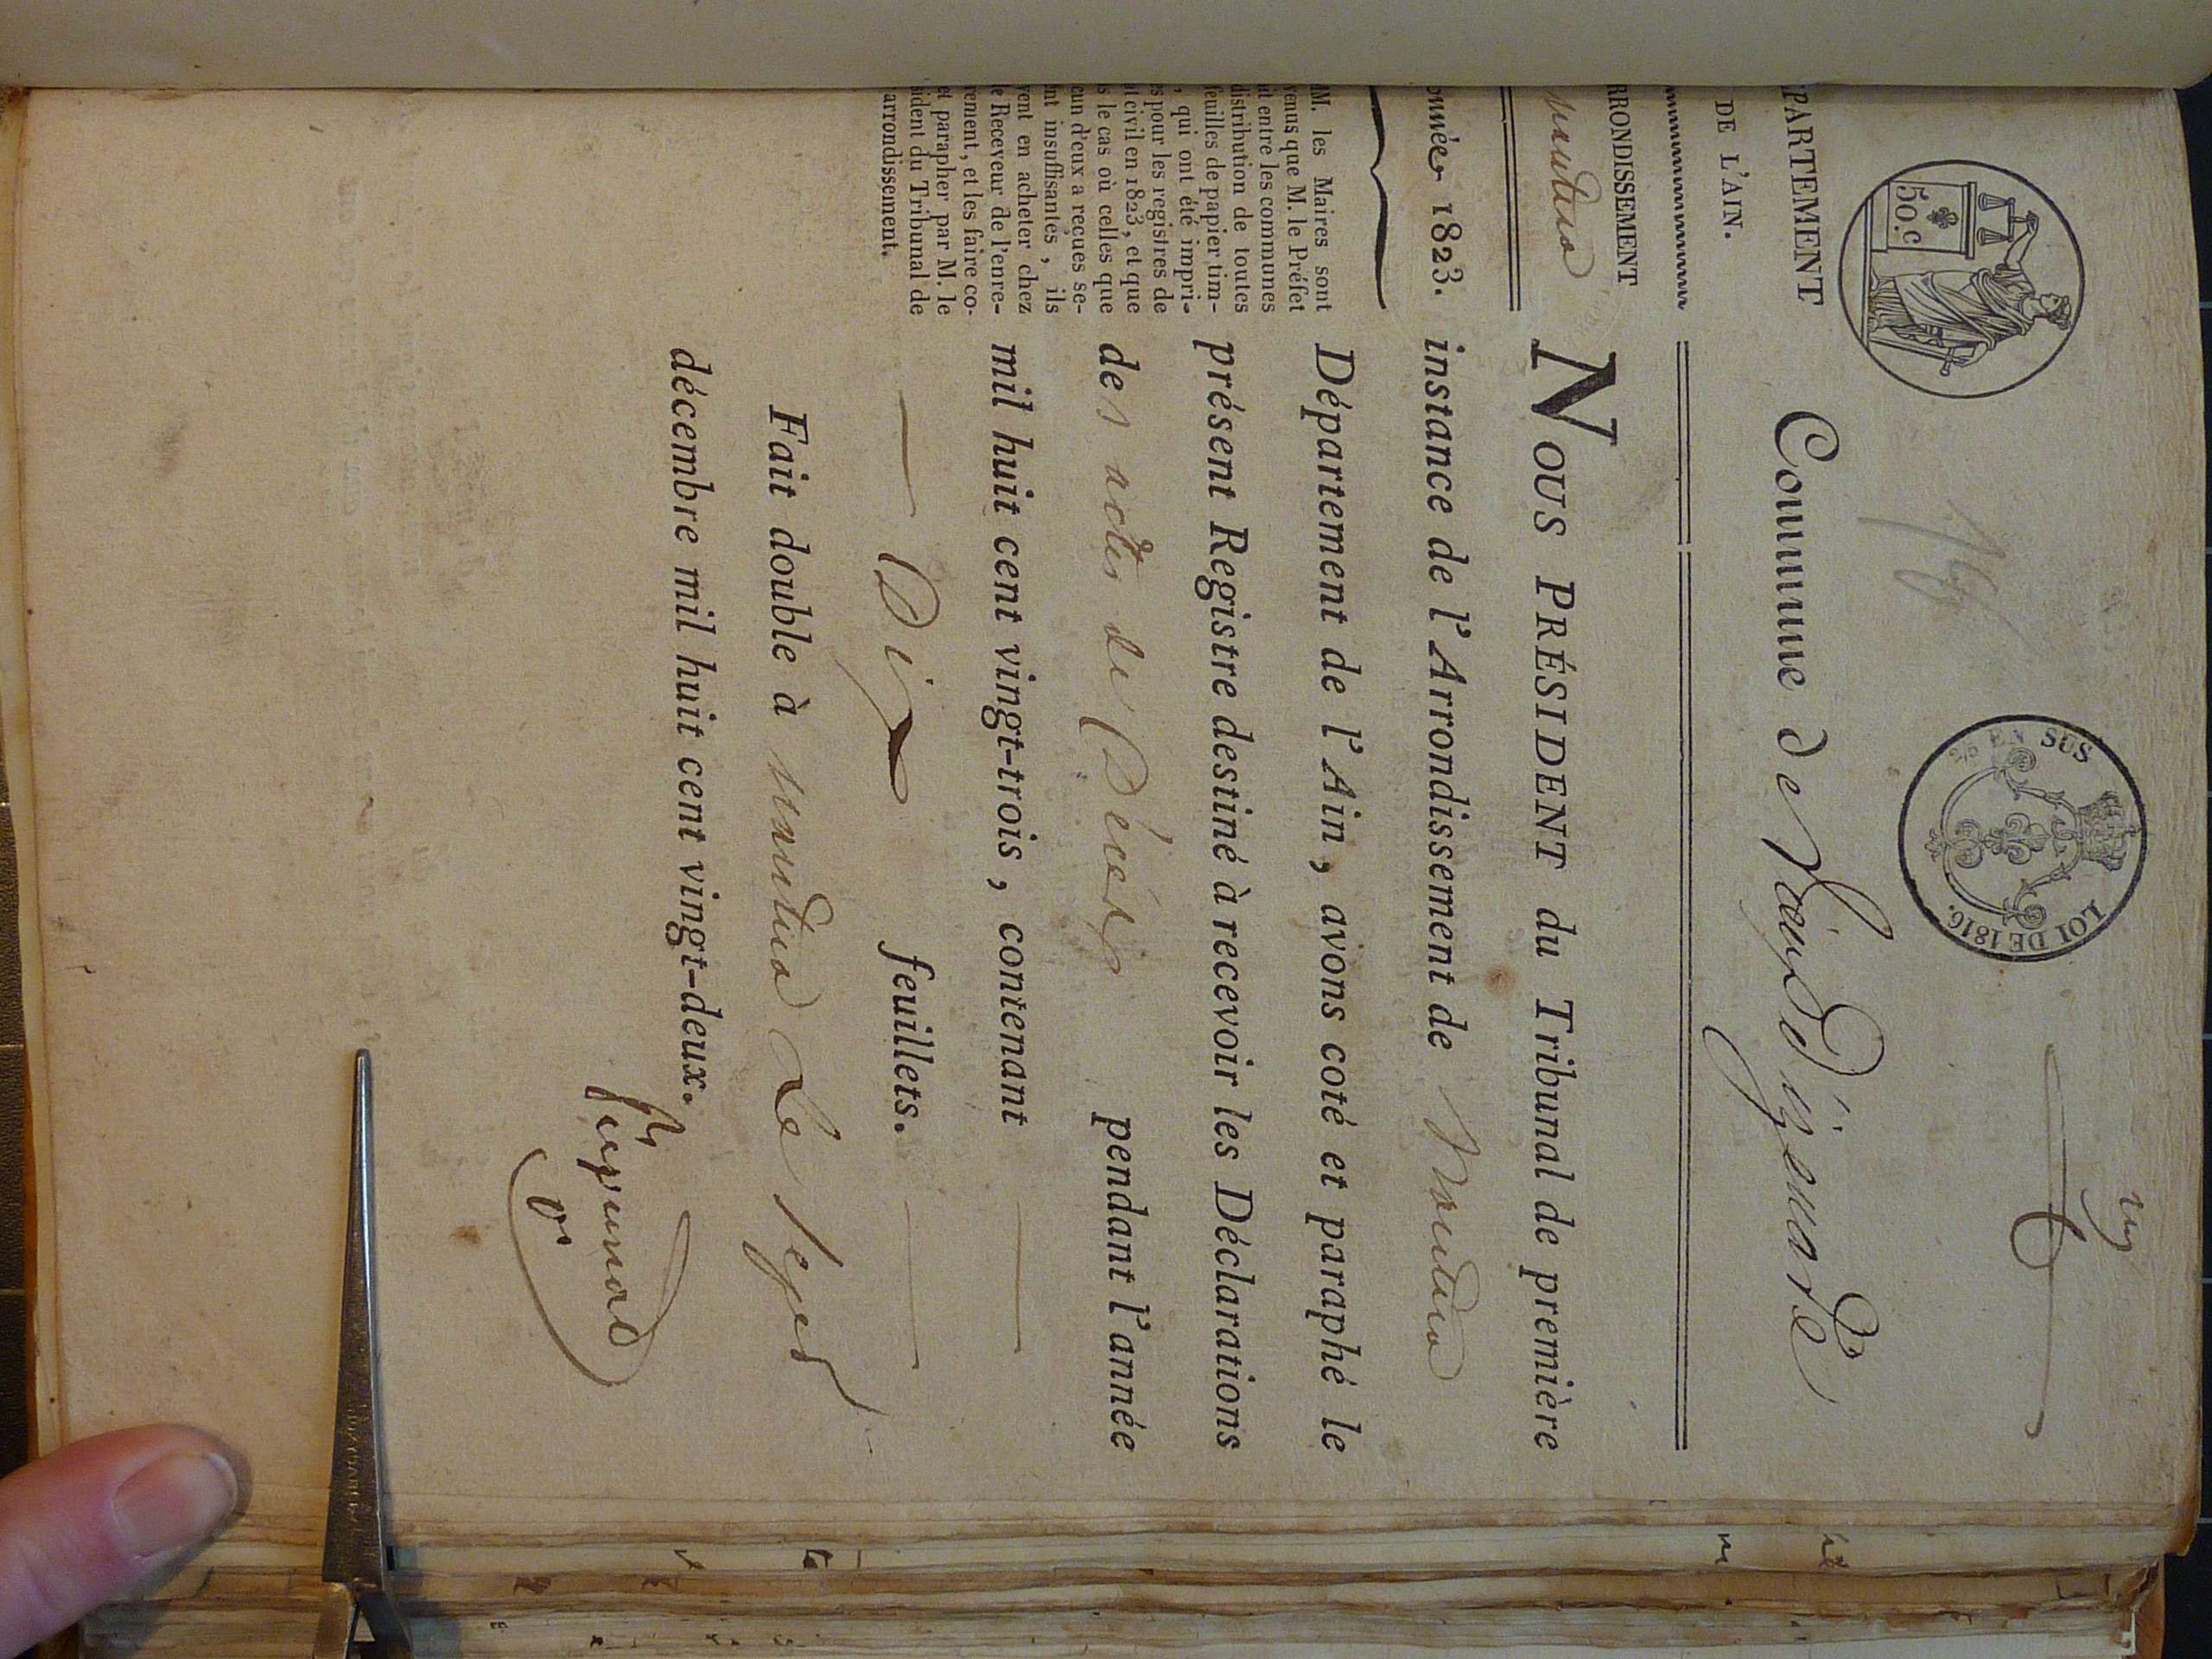 50.c
25 EN SUS
LOI DE 1816.
Commune de
PARTEMENT
DE L'AIN.
RRONDISSEMENT
nantua
nnée 1823.
M. les Maires sont
venus que M. le Préfet
it entre les communes
distribution de toutes
feuilles de papier tim-
, qui ont été impri-
es pour les registres de
t civil en 1823, et que
s le cas où celles que
cun d'eux a reçues se-
nt insuffisantes, ils
vent en acheter chez
e Receveur de l'enre-
rement, et les faire co-
et parapher par M. le
sident du Tribunal de
arrondissement.
NOUS PRÉSIDENT du Tribunal de première
instance de l'Arrondissement de Nantua
Département de l'Ain, avons coté et paraphé le
présent Registre destiné à recevoir les Déclarations
des actes de Décès pendant l'année
mil huit cent vingt-trois, contenant
Dix feuillets.
Fait double à nantua Le Sept
décembre mil huit cent vingt-deux.